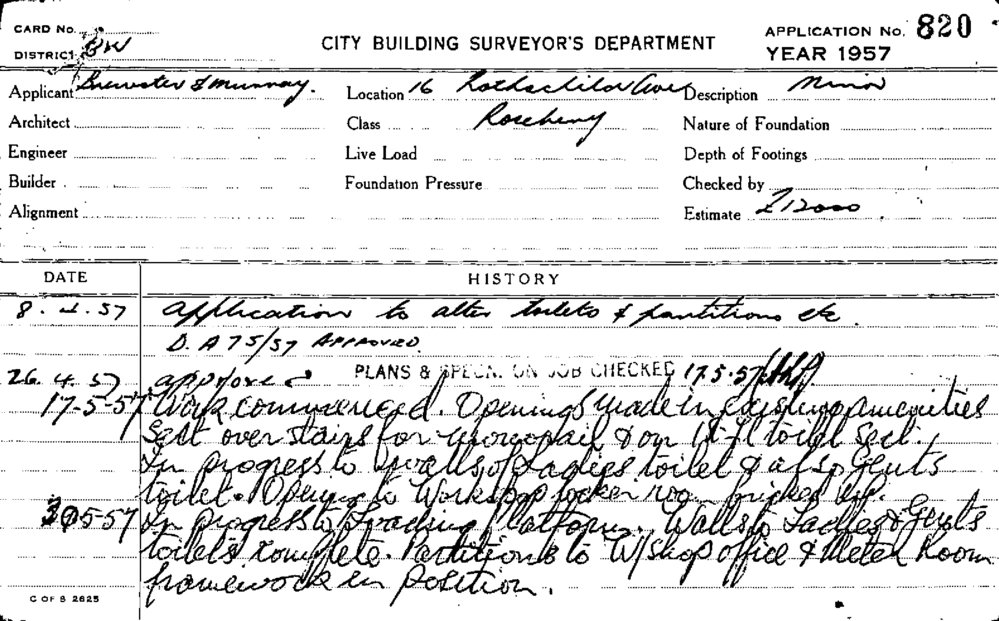 CARD No.
DISTRICT BW
CITY BUILDING SURVEYOR'S DEPARTMENT
APPLICATION No. 820
YEAR 1957
Applicant Brewster & Murray. Location 16 Rothschild Ave Description Minor
Architect Class Rosebery Nature of Foundation
Engineer Live Load Depth of Footings
Builder Foundation Pressure Checked by
Alignment Estimate £12000
DATE HISTORY
8. 4. 57 Application to alter toilets & partitions etc
D. A 75/57 APPROVED
26. 4. 57 approved PLANS & SPECN. ON JOB CHECKED 17.5.57
17-5-57 Work commenced. Openings made in existing amenities
Sect over stairs for monorail & on 1st fl toilet Sect.
In progress to walls of Ladies toilet & also Gents
toilet. Opening to Workshop locker room bricked up.
30-5-57 In progress to Loading Platform. Walls to Ladies & Gents
toilets complete. Partitions to W/shop office & Meter Room
framework in position.
C OF S 2625